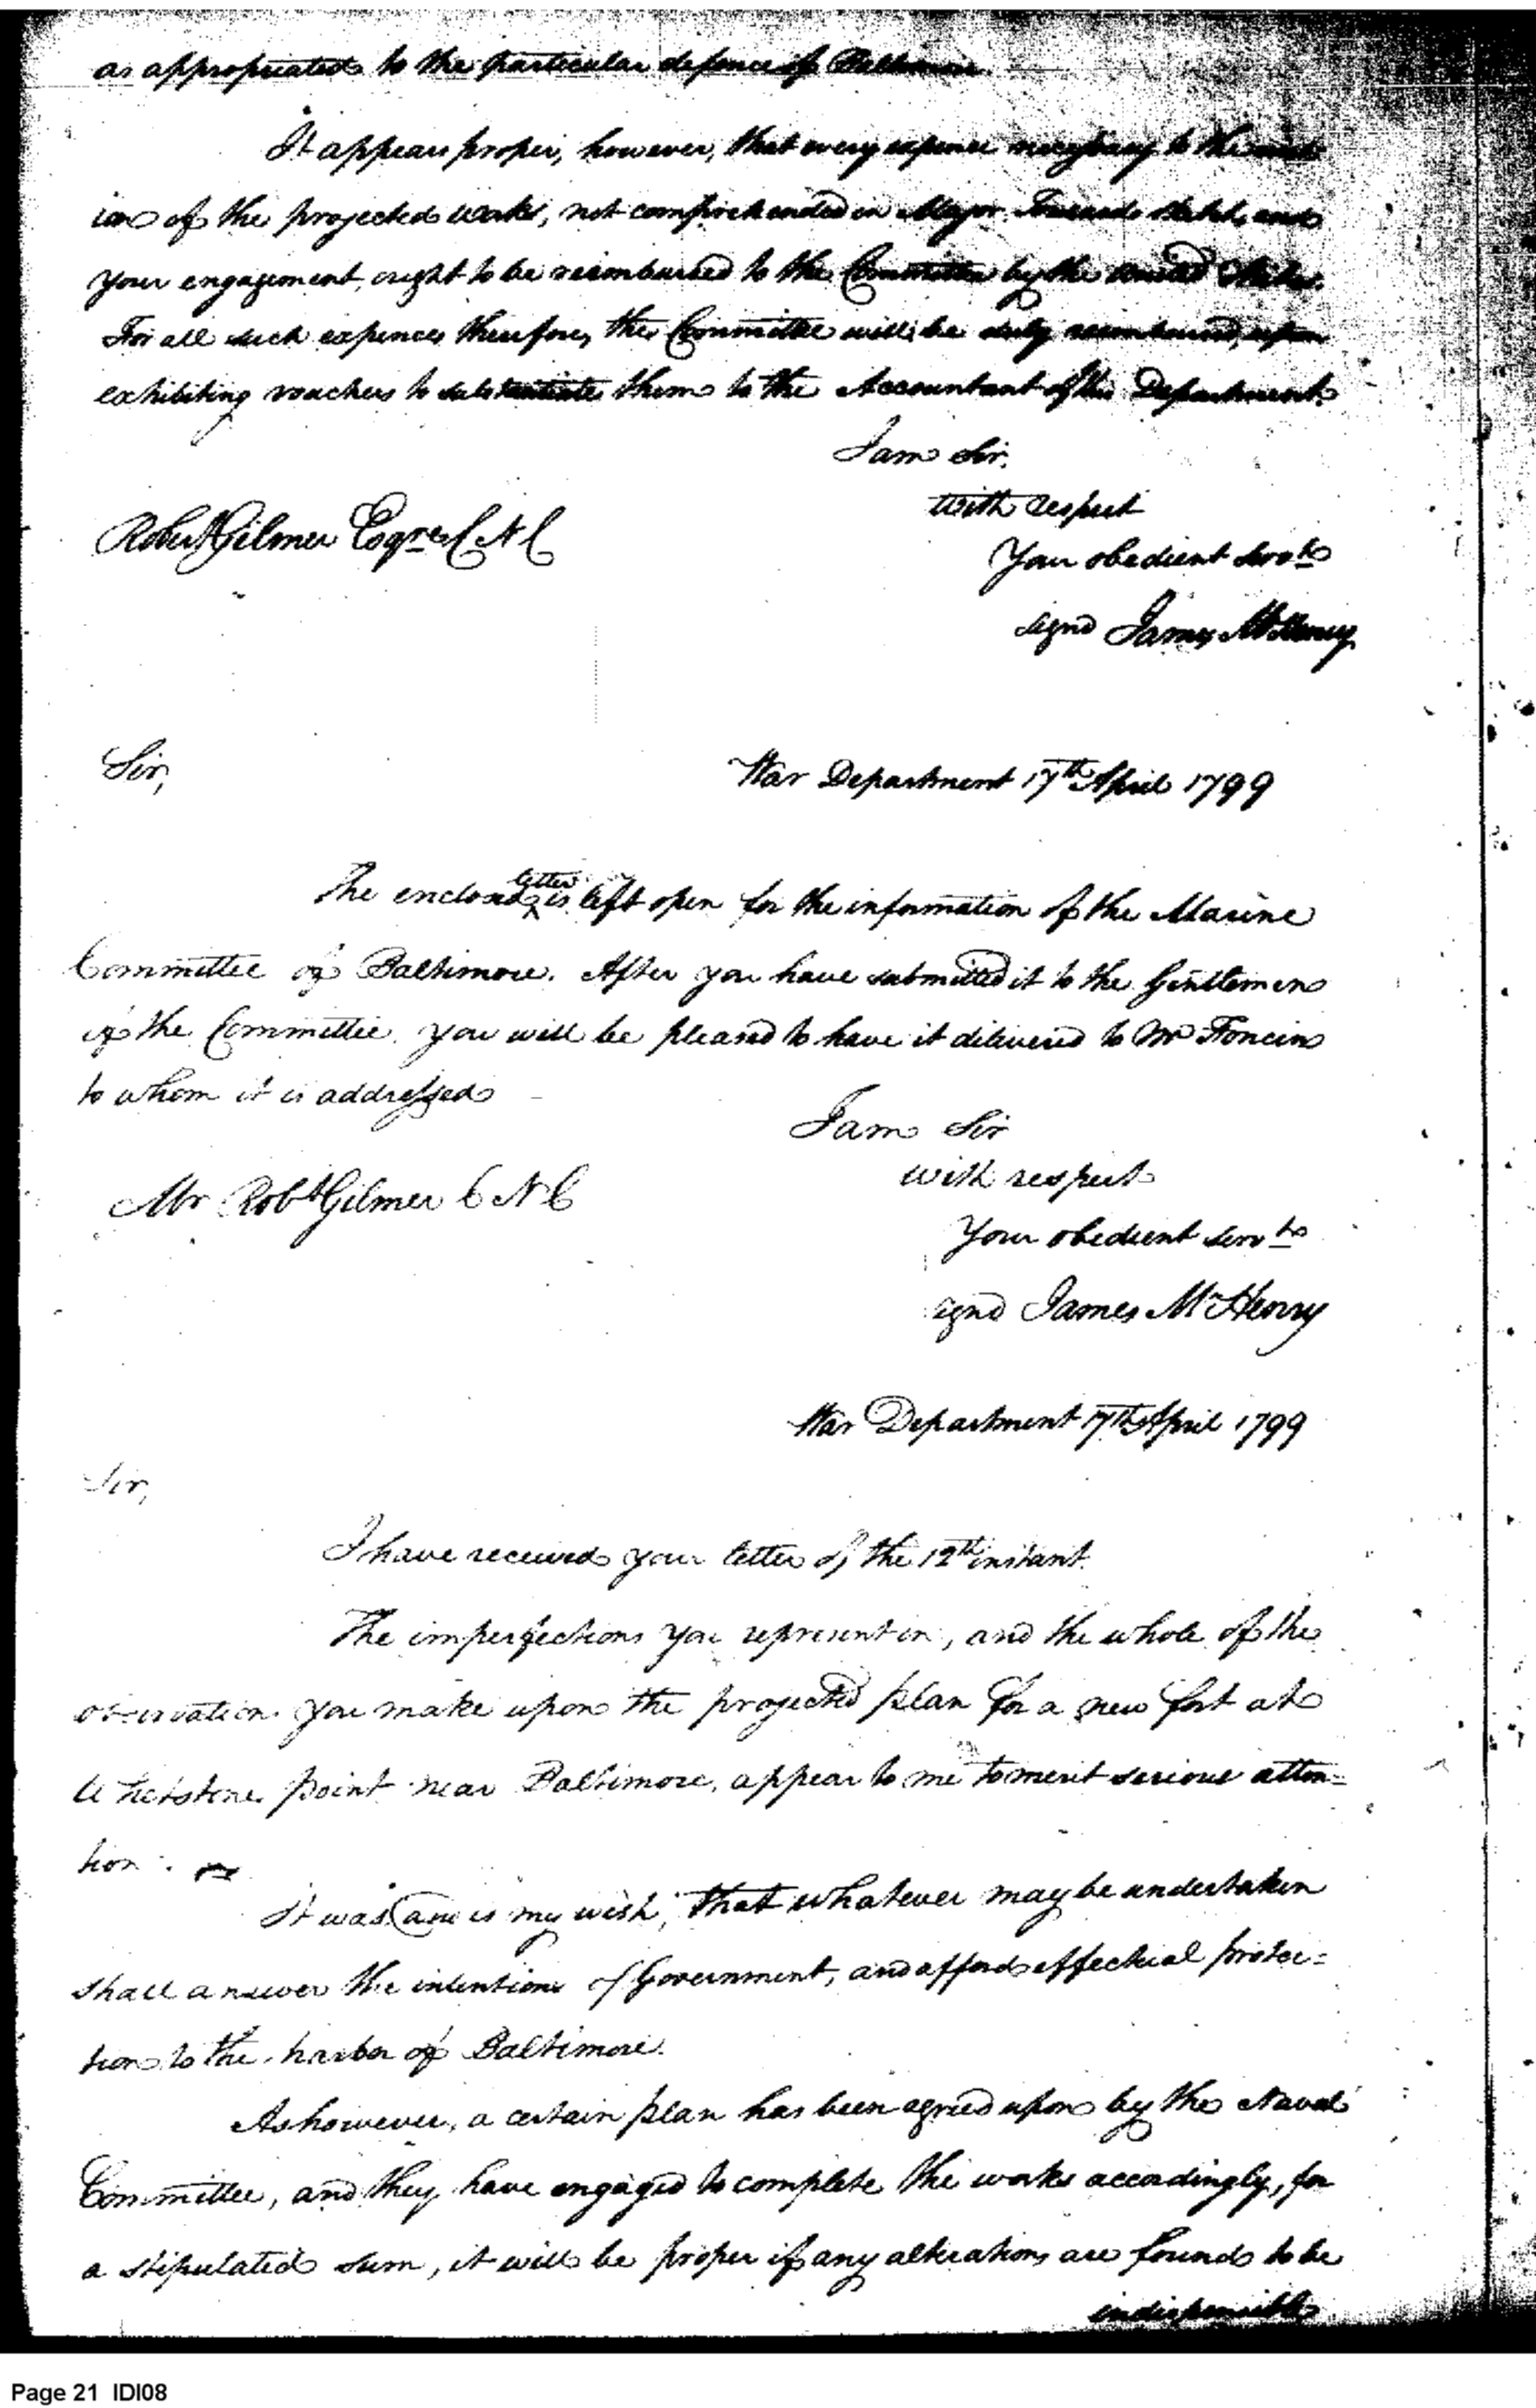 as appropriated to the particular defence of Baltimore.
It appears proper, however, that every expence necessary to the
ion of the projected works, not comprehended in Major Tousards sketch, and
your engagement, ought to be reimbursed to the Committee by the United States.
For all such expences therefore, the Committee will be duly reimbursed, upon
exhibiting vouchers to substantiate them to the Accountant of this Department.
I am Sir,
with respect
Your obedient servt
signd James McHenry
Robert Gilmer Esqre C N C
Sir,
War Department 17th April 1799
The enclosed letter is left open for the information of the Marine
Committee of Baltimore. After you have submitted it to the Gentlemen
of the Committee, you will be pleased to have it delivered to Mr Foncin
to whom it is addressed
I am Sir
with respect
Your obedient servt
signd James McHenry
Mr Robt Gilmer C N C
War Department 17th April 1799
Sir,
I have received your letter of the 12th instant.
The imperfections you represent in, and the whole of the
observations you make upon the projected plan for a new fort at
Whetstone point near Baltimore, appear to me to merit serious atten=
tion.
It was and is my wish, that whatever may be undertaken
shall answer the intentions of Government, and afford effectual protec=
tion to the harbor of Baltimore.
As however, a certain plan has been agreed upon by the Naval
Committee, and they have engaged to complete the works accordingly, for
a stipulated sum, it will be proper if any alterations are found to be
indispensible
Page 21 IDI08